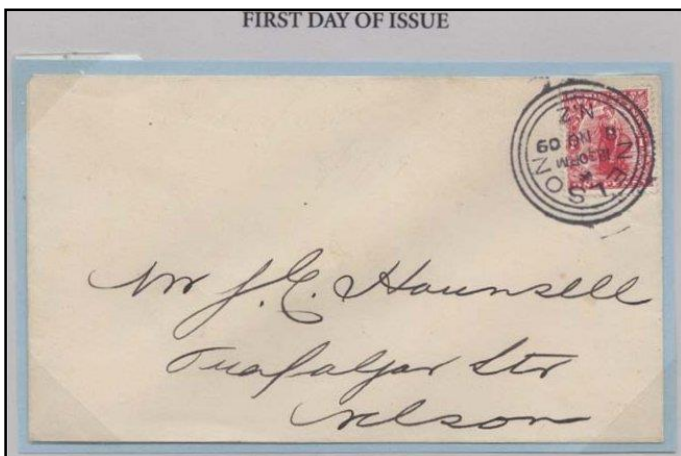 FIRST DAY OF ISSUE
NELSON
N.Z
8 NO 09
Mr J. C. Hounsell
Trafalgar Str
Nelson